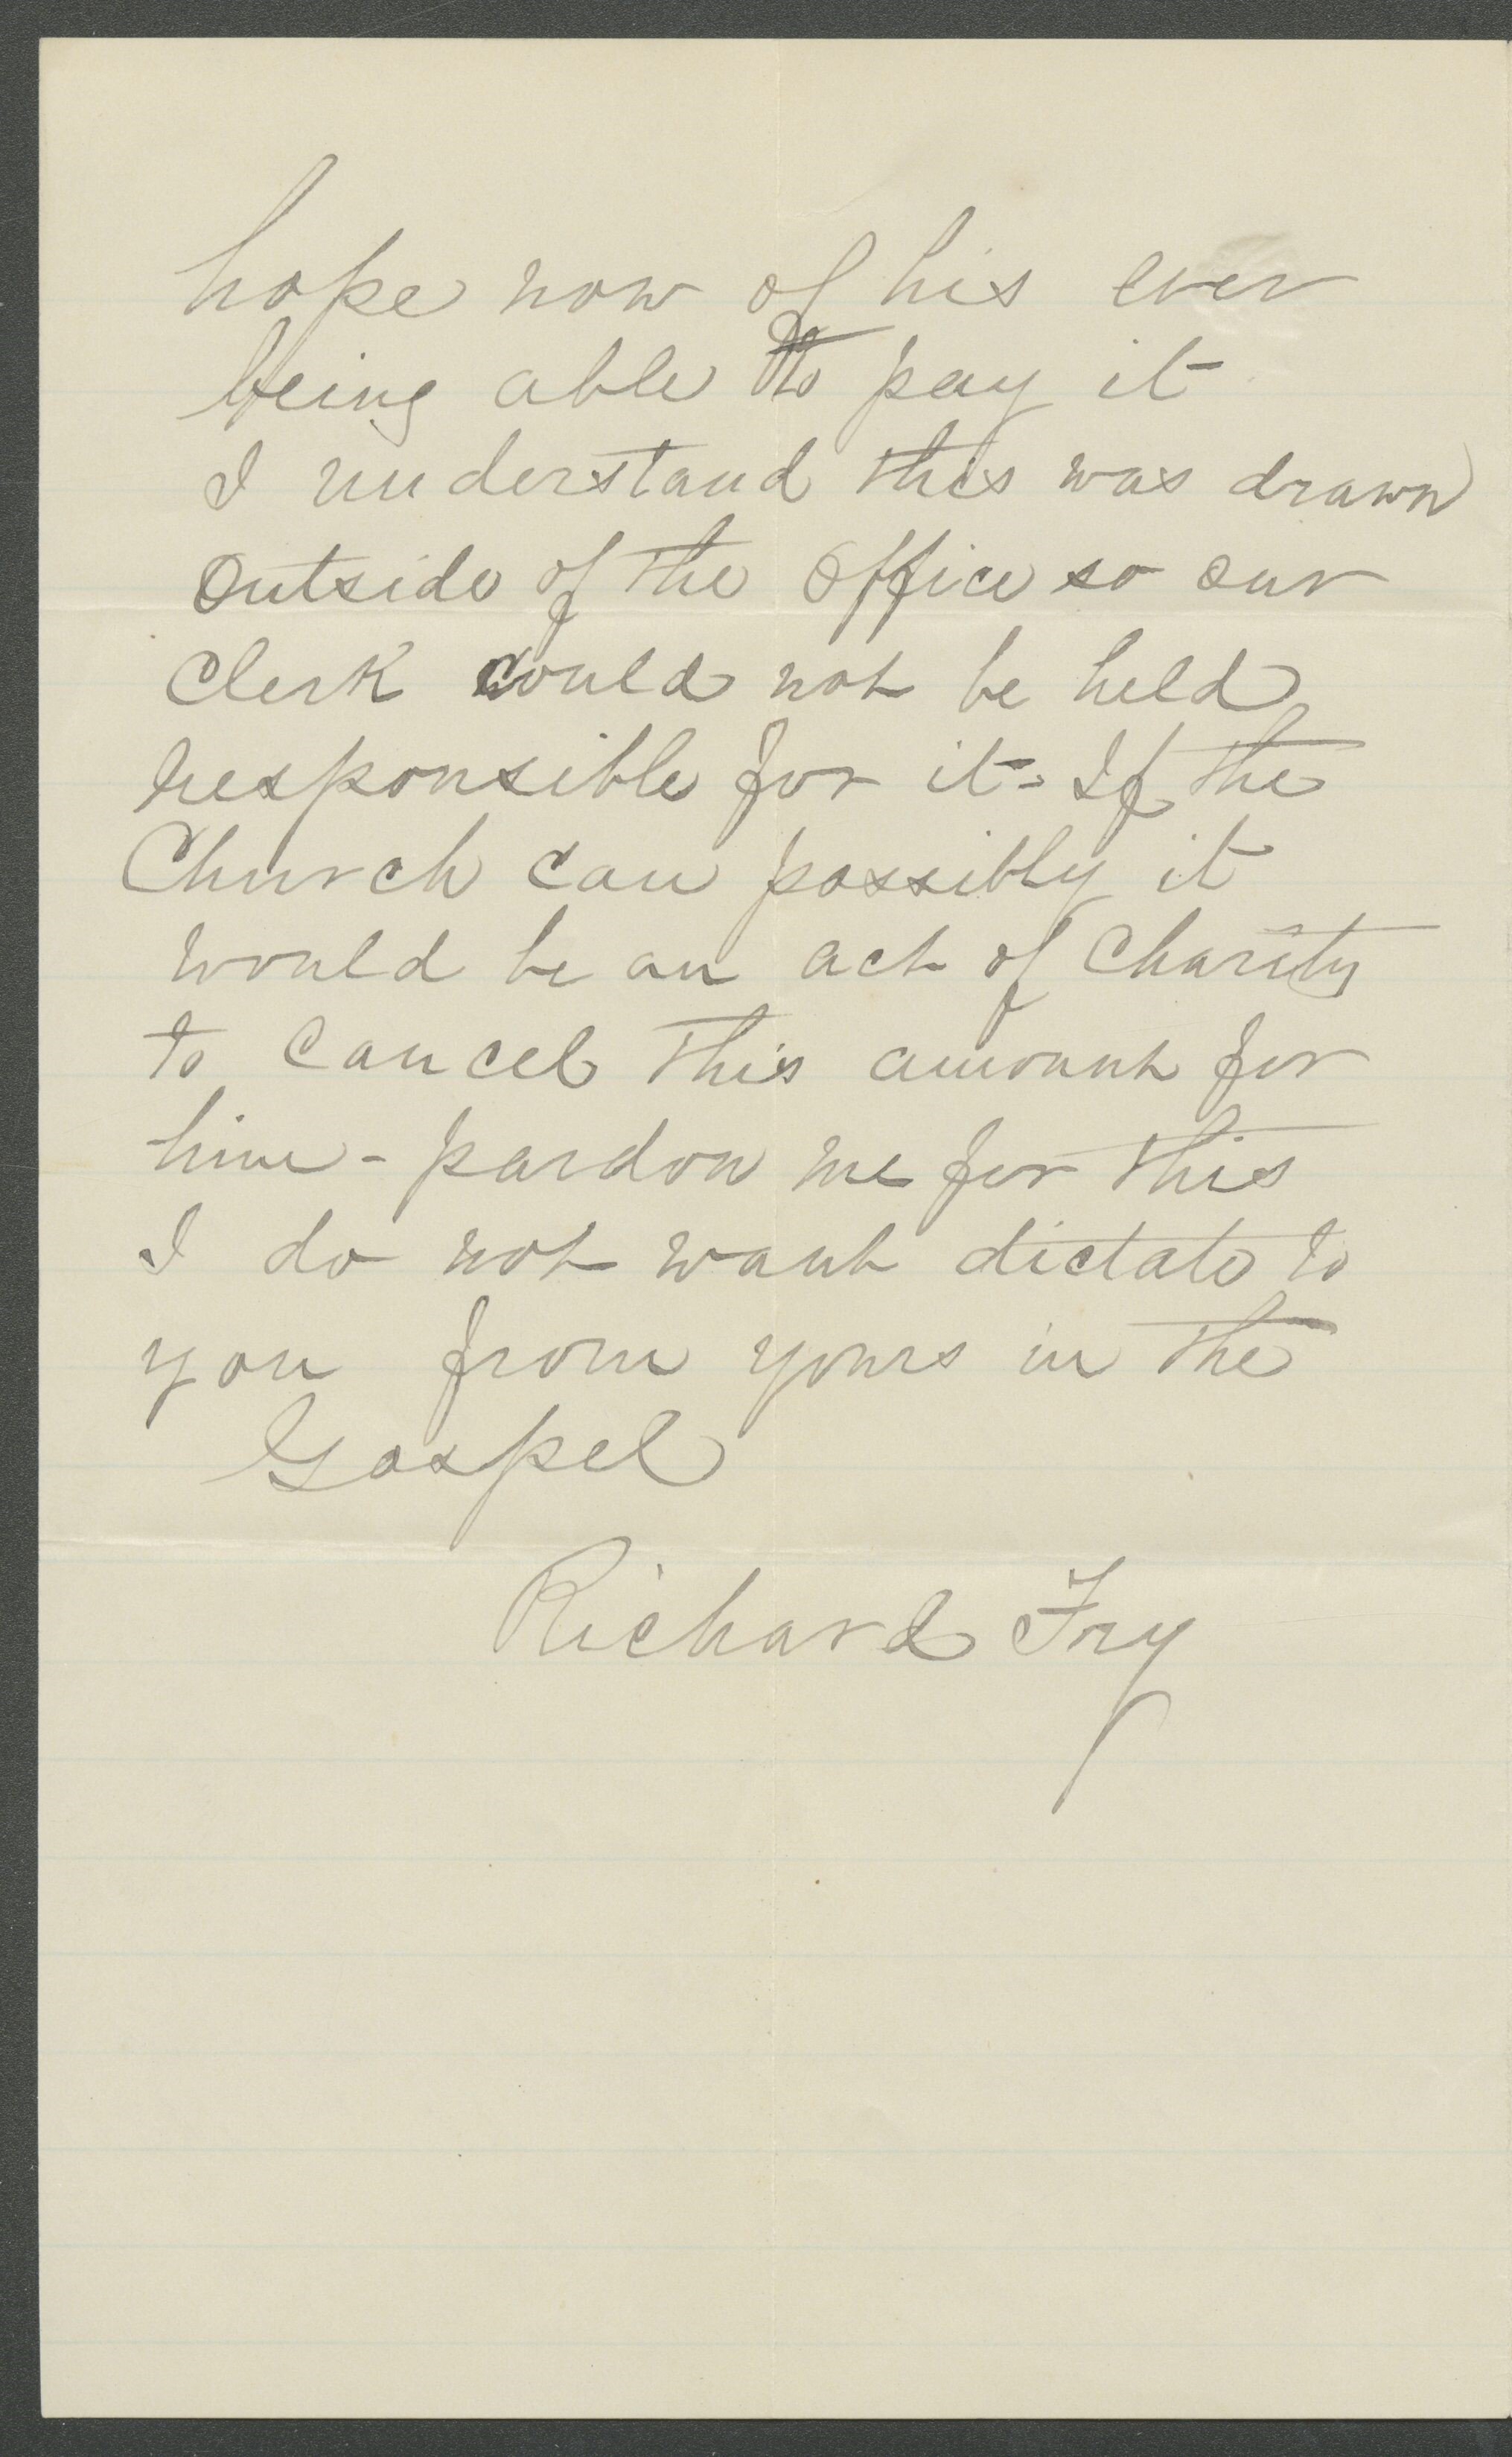 hope now of his ever
being able to pay it
I understand this was drawn
outside of the office so our
Clerk could not be held
responsible for it = If the
Church can possibly it
would be an act of Charity
to cancel this amount for
him - pardon me for this
I do not want dictate to
you from yours in the
Gospel
Richard Fry